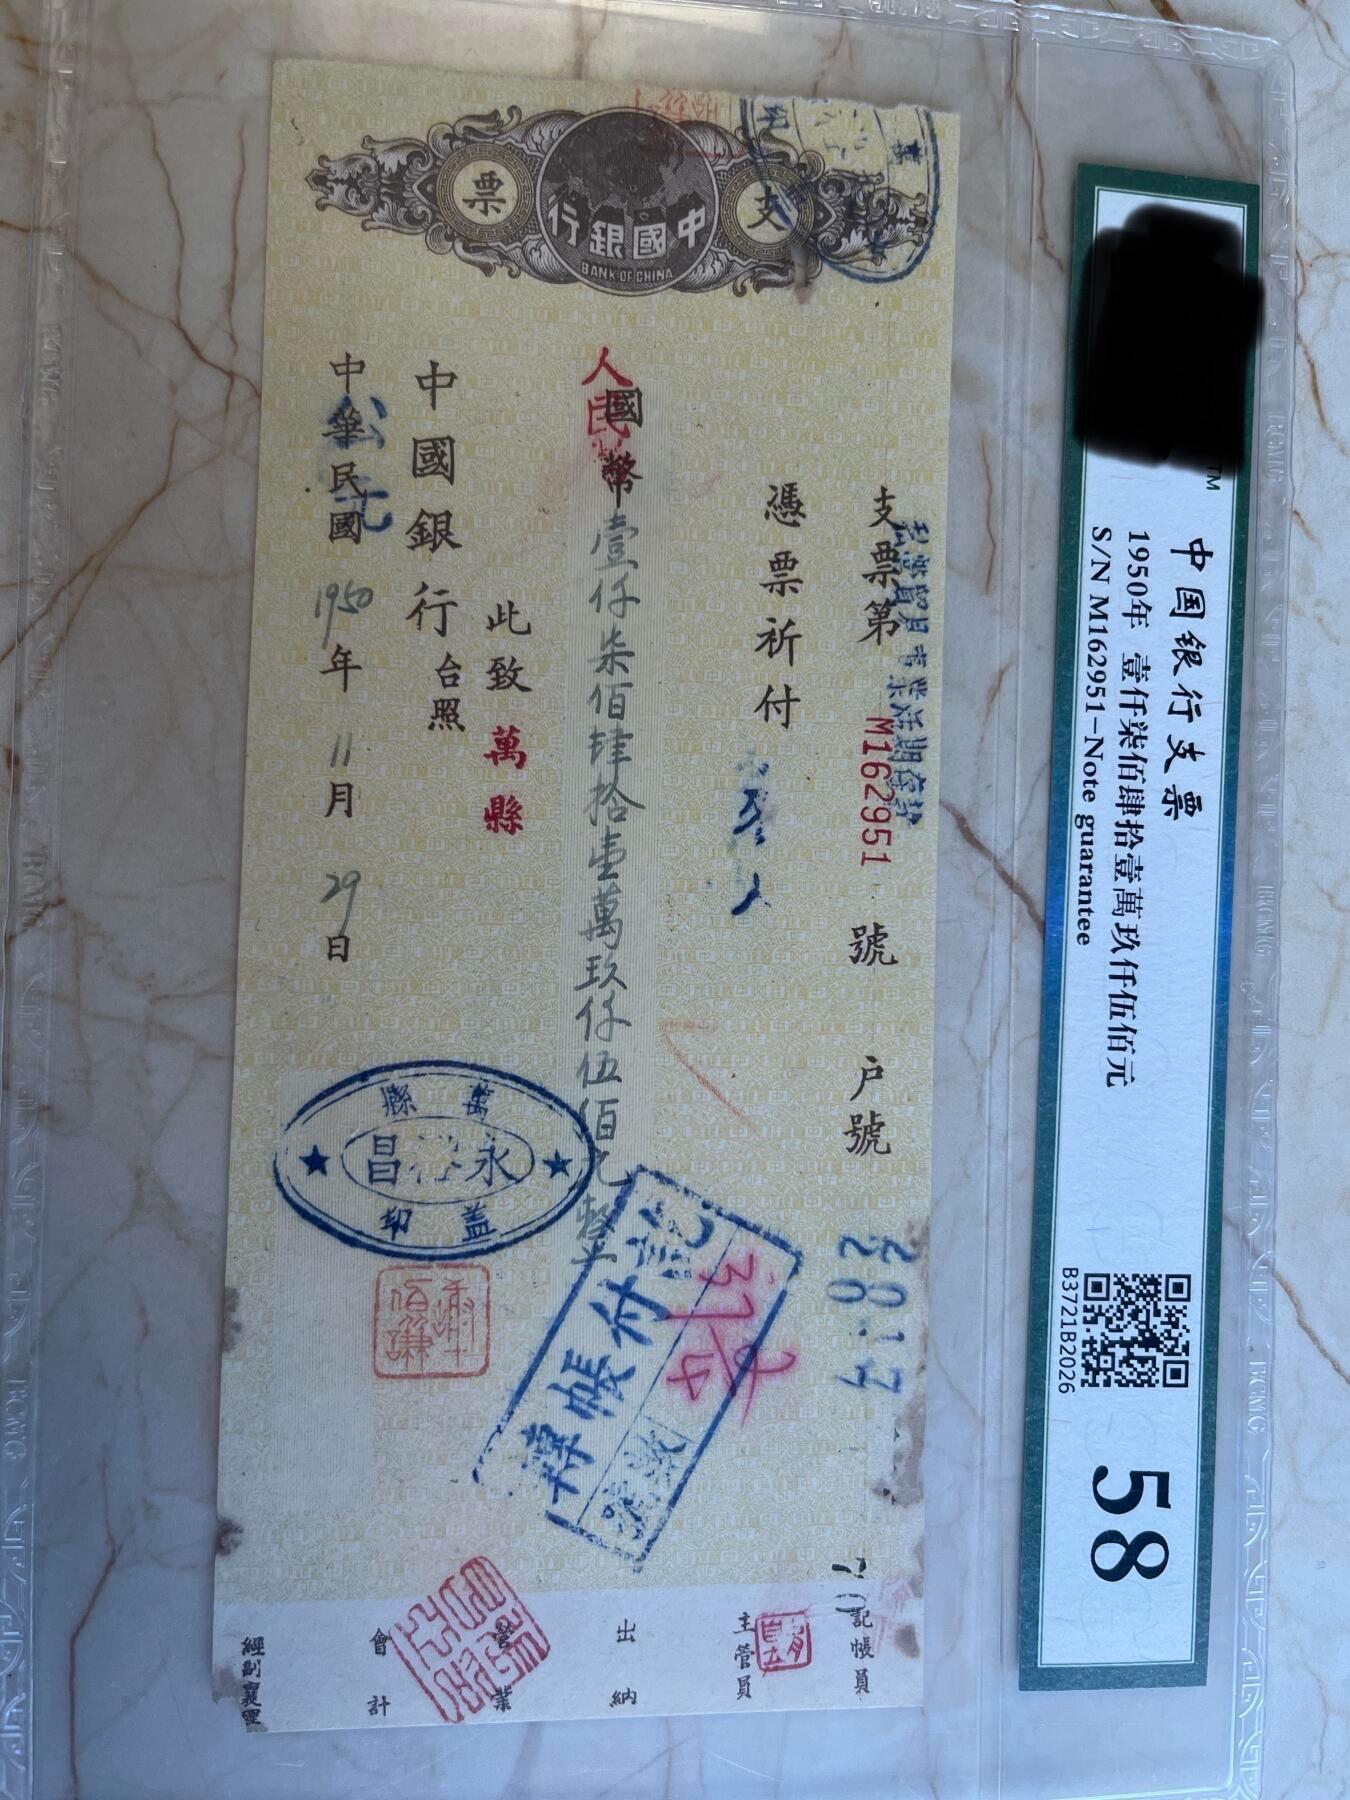 支票
中國銀行
BANK OF CHINA
支票第 M162951 號 户號
私營貿易
28073
憑票祈付
人民
國幣壹仟柒佰肆拾壹萬玖仟伍佰元整
此致 萬縣
中國銀行 台照
公元
中華民國 1950年 11月 29日
萬縣
永裕昌
蓋印
轉帳付訖
號數
記帳員
主管員
出納
營業
會計
經副襄理
中国银行支票
1950年 壹仟柒佰肆拾壹萬玖仟伍佰元
S/N M162951-Note guarantee
B3721B2026
58
TM